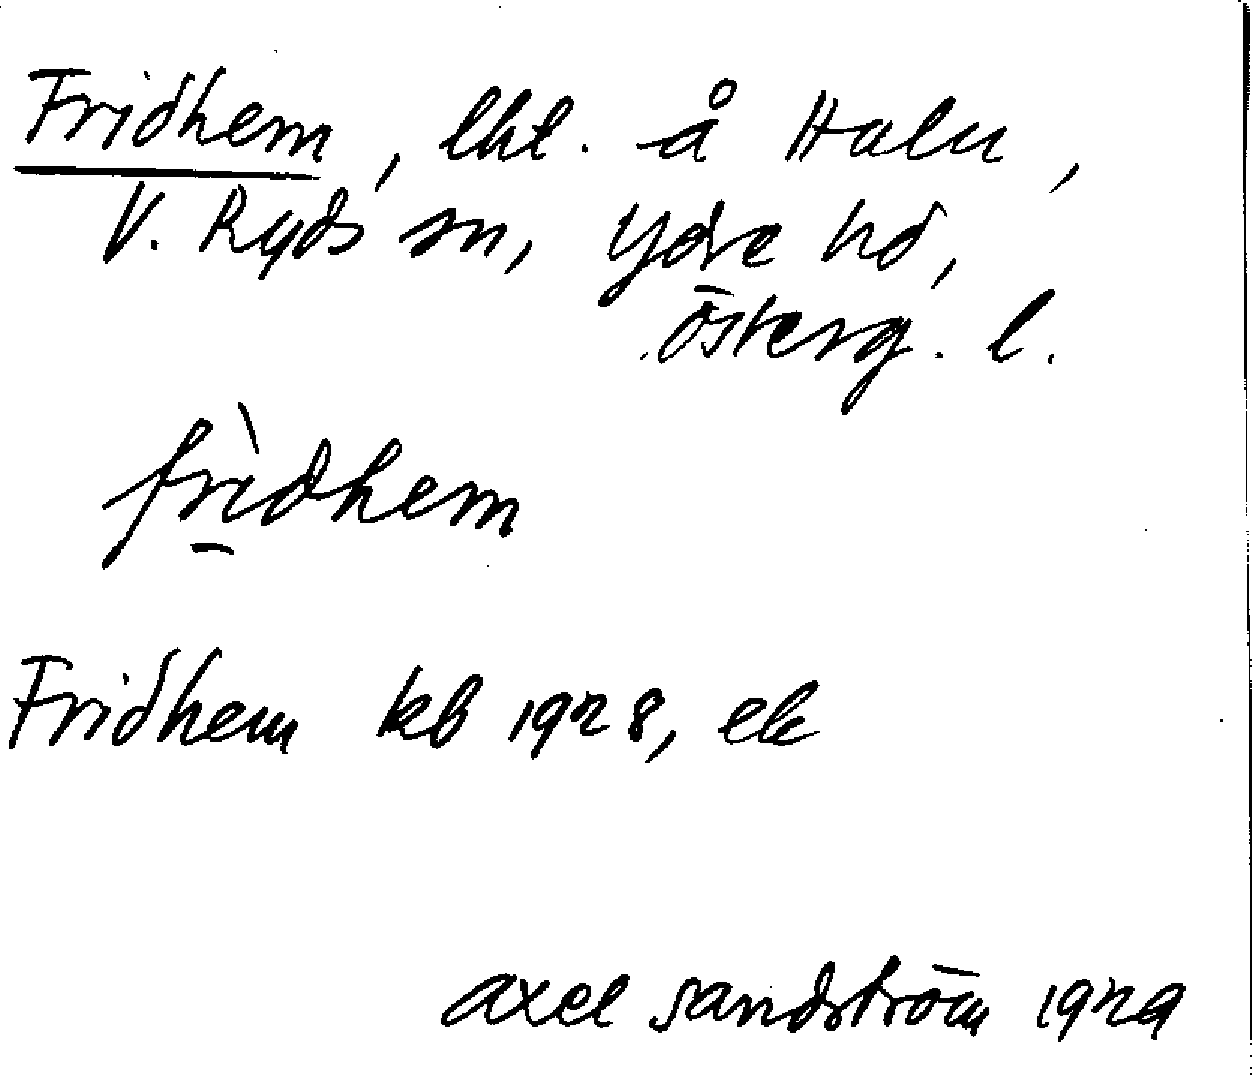 Fridhem, lht. å Halu,
V. Ryds sn, Ydre hd,
Österg. l.
frìdhem
Fridhem kb 1928, ek
Axel Sandström 1929